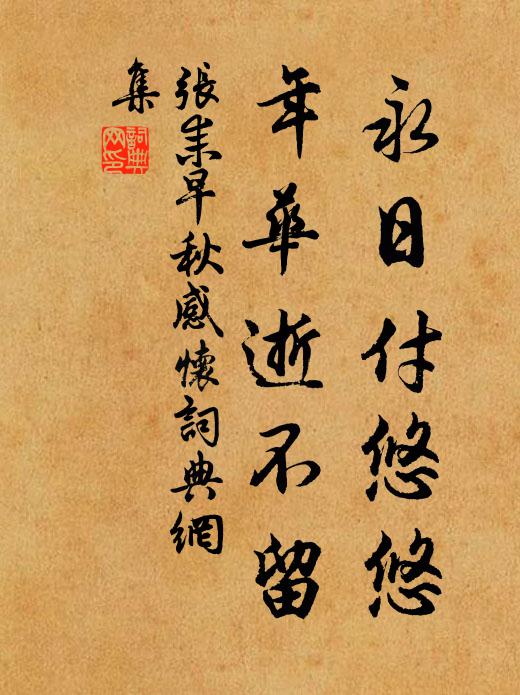 永日付悠悠
年華逝不留
張耒早秋感懷詞典網
集
詞典網印